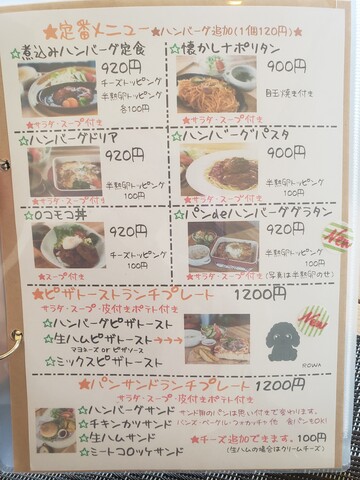 ★定番メニュー★ハンバーグ追加(1個120円)
☆煮込みハンバーグ定食
920円
チーズトッピング
半熟卵トッピング
各100円
★サラダ・スープ付き
☆懐かしナポリタン
900円
目玉焼き付き
★サラダ・スープ付き
☆ハンバーグドリア
920円
半熟卵トッピング
100円
★サラダ・スープ付き
☆ハンバーグパスタ
900円
半熟卵トッピング
100円
★サラダ・スープ付き
☆ロコモコ丼
920円
チーズトッピング
100円
★スープ付き
☆パンdeハンバーググラタン
920円
半熟卵トッピング
100円
★サラダ・スープ付き (写真は半熟卵のせ)
New
★ピザトーストランチプレート 1200円
サラダ・スープ・皮付きポテト付き
☆ハンバーグピザトースト
☆生ハムピザトースト→→→
マヨネーズ or ピザソース
☆ミックスピザトースト
New
ROWA
★パンサンドランチプレート 1200円
サラダ・スープ・皮付きポテト付き
☆ハンバーグサンド
サンド用のパンは思い付きで変わります。
☆チキンカツサンド
バンズ・ベーグル・フォカッチャ 他 食パンもOK!
☆生ハムサンド
★チーズ追加できます。100円
☆ミートコロッケサンド
(生ハムの場合はクリームチーズ)